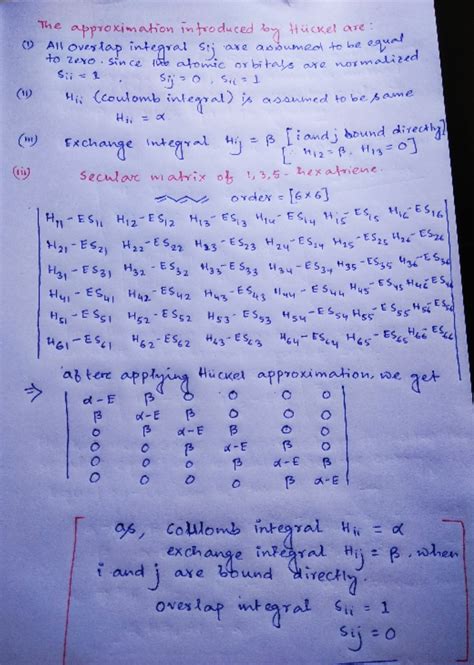 The approximation introduced by Hückel are:
(i) All overlap integral Sij are assumed to be equal
to zero. Since the atomic orbitals are normalized
Sii = 1 , Sij = 0 , Sii = 1
(ii) Hii (coulomb integral) is assumed to be same
Hii = α
(iii) Exchange Integral Hij = β [i and j bound directly]
[∵ H12 = β, H13 = 0]
(iii) Secular matrix of 1,3,5- hexatriene.
order = [6×6]
H11-ES11 H12-ES12 H13-ES13 H14-ES14 H15-ES15 H16-ES16
H21-ES21 H22-ES22 H23-ES23 H24-ES24 H25-ES25 H26-ES26
H31-ES31 H32-ES32 H33-ES33 H34-ES34 H35-ES35 H36-ES36
H41-ES41 H42-ES42 H43-ES43 H44-ES44 H45-ES45 H46-ES46
H51-ES51 H52-ES52 H53-ES53 H54-ES54 H55-ES55 H56-ES56
H61-ES61 H62-ES62 H63-ES63 H64-ES64 H65-ES65 H66-ES66
⇒ after applying Hückel approximation, we get
α-E β 0 0 0 0
β α-E β 0 0 0
0 β α-E β 0 0
0 0 β α-E β 0
0 0 0 β α-E β
0 0 0 0 β α-E
as, coulomb integral Hii = α
exchange integral Hij = β, when
i and j are bound directly.
overlap integral Sii = 1
Sij = 0